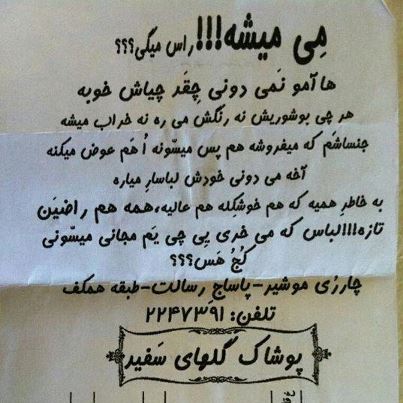 مِی میشه!!! راس میگی؟؟؟
هاآمو نَمی دونی چِقَد چیاش خوبه
هر چی بوشوریش نه رنگش می ره نه خراب میشه
جنساشَم که میفروشه هم پس میسّونه اُ هَم عوض میکنه
آخه می دونی خودش لباسارِ میاره
به خاطرِ همیه که هم خوشگِله هم عالیه،همه هم راضیَن
تازه!!!لباس که می خری یِی چی یَم مجانی میسّونی
کُجُ هَس؟؟؟
چارزِی موشیر-پاساجِ رسالت-طبقه همکف
تلفن: ۲۲۴۷۳۹۱
پوشاک گلهای سَفید